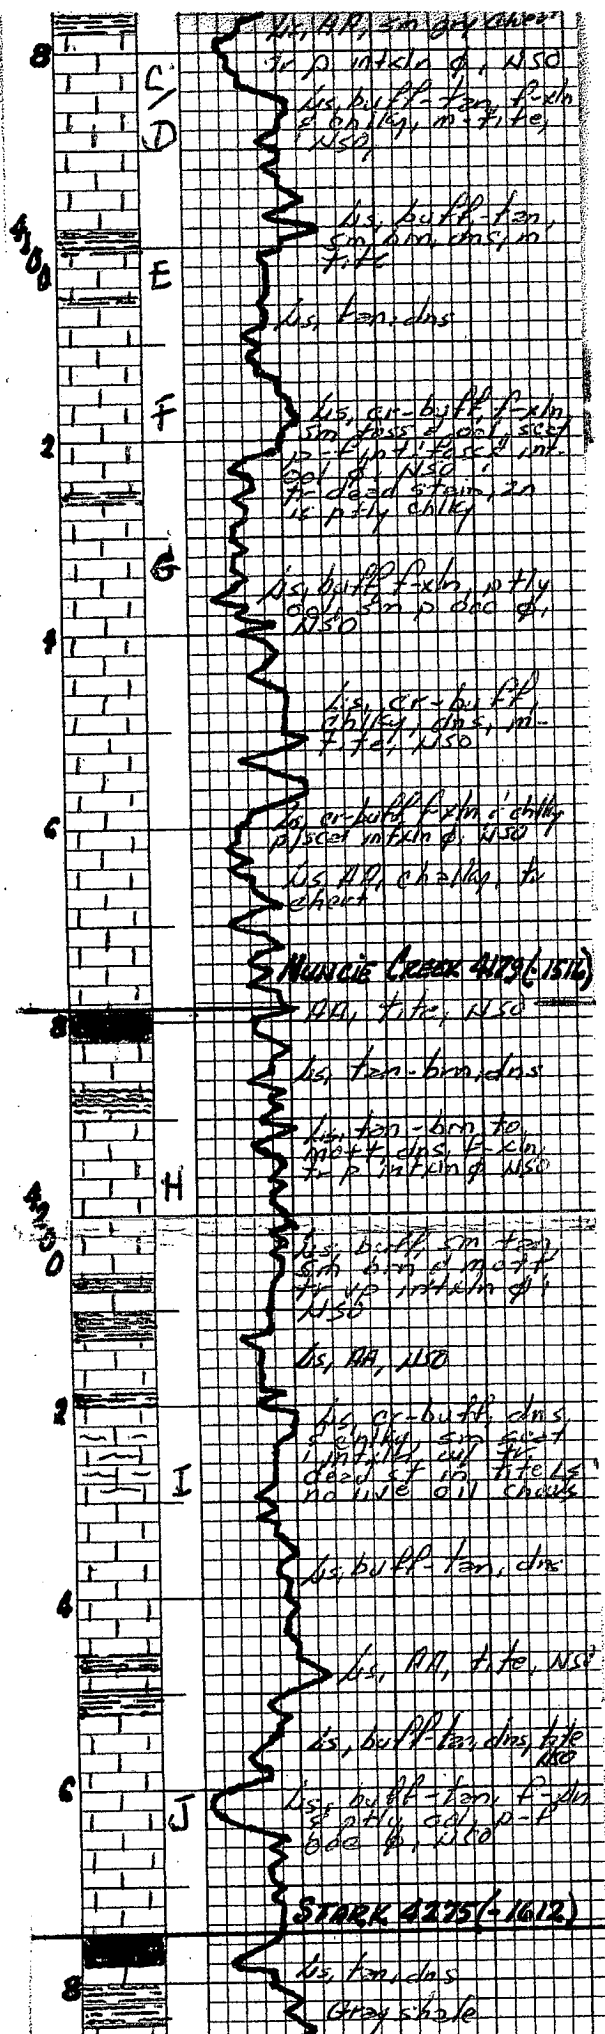 Ls, AA, sm gry chert
8
tr p intxln ϕ, NSO
C/D
Ls, buff-tan, f-xln
& chlky, m-tite,
NSO,
Ls, buff-tan,
sm brn, dns, m-
tite
4100
E
Ls, tan, dns
F
Ls, cr-buff, f-xln
sm foss & ool, scat
ool ϕ, NSO
2
tr dead stain, zn
is ptly chlky
G
Ls, buff f-xln, ptly
ool, sm p ooc ϕ,
NSO
4
Ls, cr-buff,
chlky, dns, m-
tite, NSO
Ls, cr-buff, f-xln & chlky
6
p/scat intxln ϕ, NSO
Ls, AA, chalky, tr
chert
MUNCIE CREEK 4179 (-1516)
AA, tite, NSO
8
Ls, tan-brn, dns
Ls, tan-brn to
mott, dns, f-xln,
tr p intxln ϕ NSO
H
4200
Ls, buff, sm tan,
sm brn & mott
tr vp intxln ϕ,
NSO
Ls, AA, NSO
2
Ls, cr-buff, dns,
& chlky, sm scat
intxln, w/ tr
dead st in tite Ls
no live oil shows
I
Ls, buff-tan, dns
4
Ls, AA, tite, NSO
Ls, buff-tan, dns, tite
NSO
6
Ls, buff-tan, f-xln
J
& ptly ool, p-f
ooc ϕ, NSO
STARK 4275 (-1612)
Ls, tan, dns
8
Gray shale